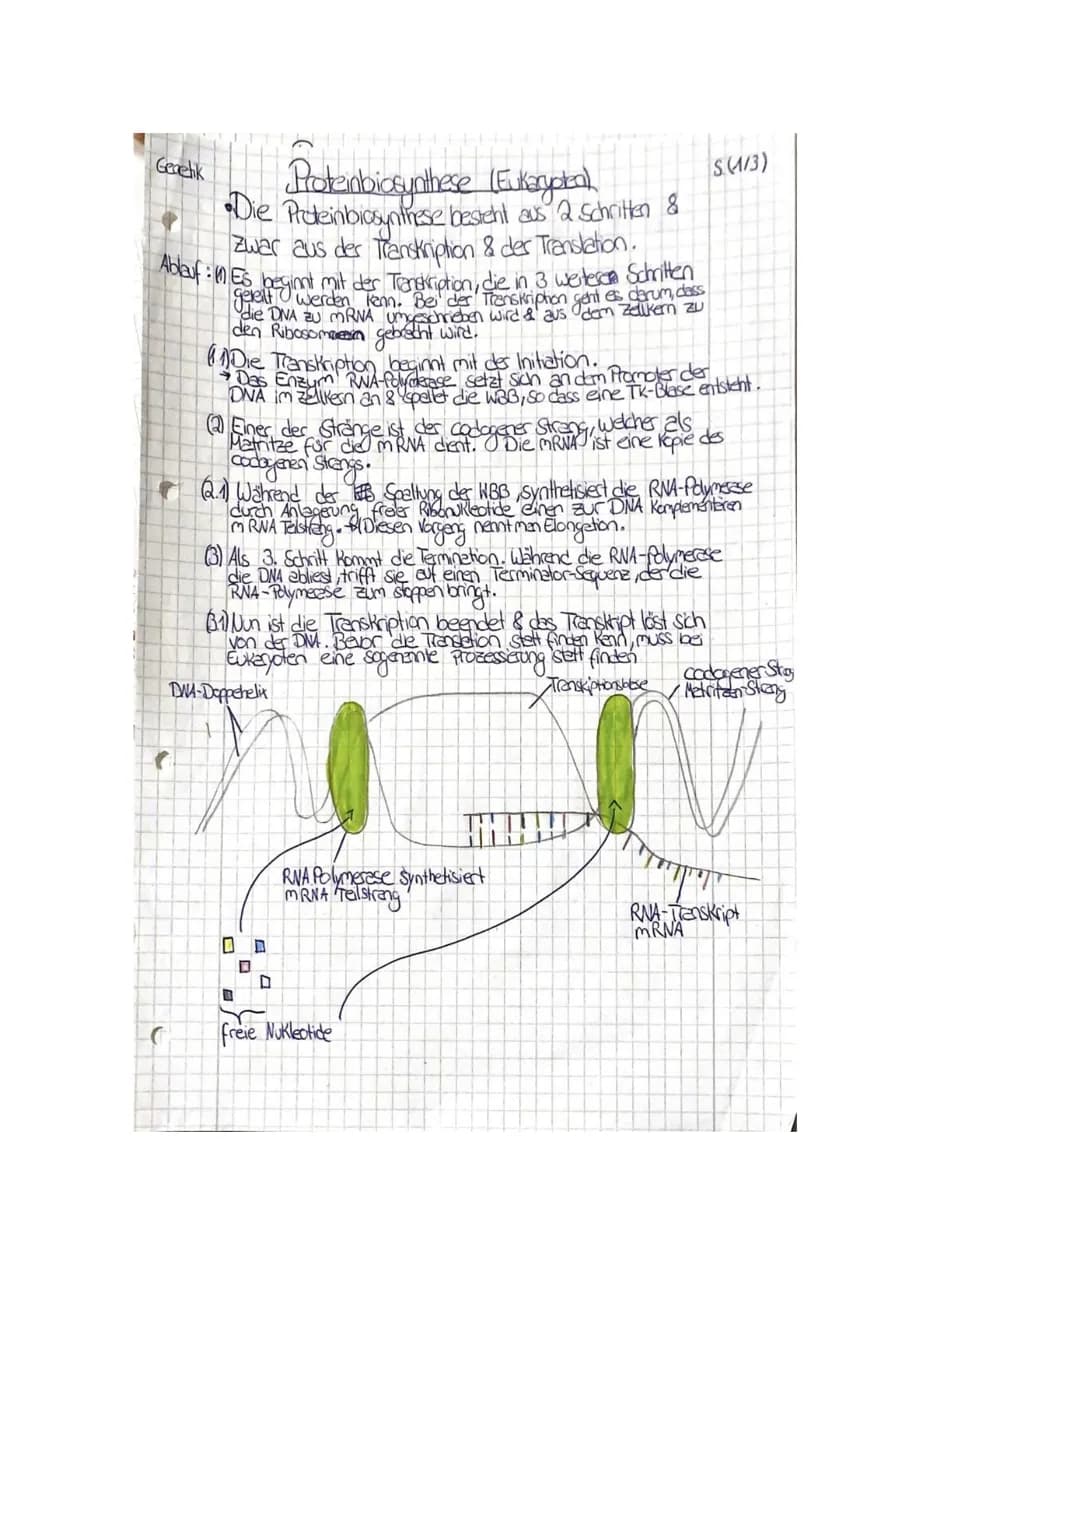 Genetik
Proteinbiosynthese (Eukaryoten)
S.(1/3)
•Die Proteinbiosynthese besteht aus 2 Schritten &
zwar aus der Transkription & der Translation.
Ablauf: (1) Es beginnt mit der Transkription, die in 3 weiteren Schritten
geteilt werden kann. Bei der Transkription geht es darum, dass
die DNA zu mRNA umgeschrieben wird & aus dem Zellkern zu
den Ribosomen gebracht wird.
(1.1) Die Transkription beginnt mit der Initiation.
→ Das Enzym RNA-Polymerase setzt sich an den Promoter der
DNA im Zellkern an & spaltet die WBB, so dass eine TK-Blase entsteht.
(2) Einer der Stränge ist der codogener Strang, welcher als
Matritze für die mRNA dient. Die mRNA ist eine Kopie des
codogenen Strangs.
(2.1) Während der Spaltung der WBB, synthetisiert die RNA-Polymerase
durch Anlagerung freier Ribonukleotide einen zur DNA komplementären
mRNA Teilstrang. Diesen Vorgang nennt man Elongation.
(3) Als 3. Schritt kommt die Termination. Während die RNA-Polymerase
die DNA abliest, trifft sie auf einen Terminator-Sequenz, der die
RNA-Polymerase zum stoppen bringt.
(3.1) Nun ist die Transkription beendet & das Transkript löst sich
von der DNA. Bevor die Translation statt finden kann, muss bei
Eukaryoten eine sogenannte Prozessierung statt finden
DNA-Doppelhelix
Transkriptionsblase
codogener Strang
Matritzen Strang
RNA Polymerase synthetisiert
mRNA Teilstrang
RNA-Transkript
mRNA
freie Nukleotide